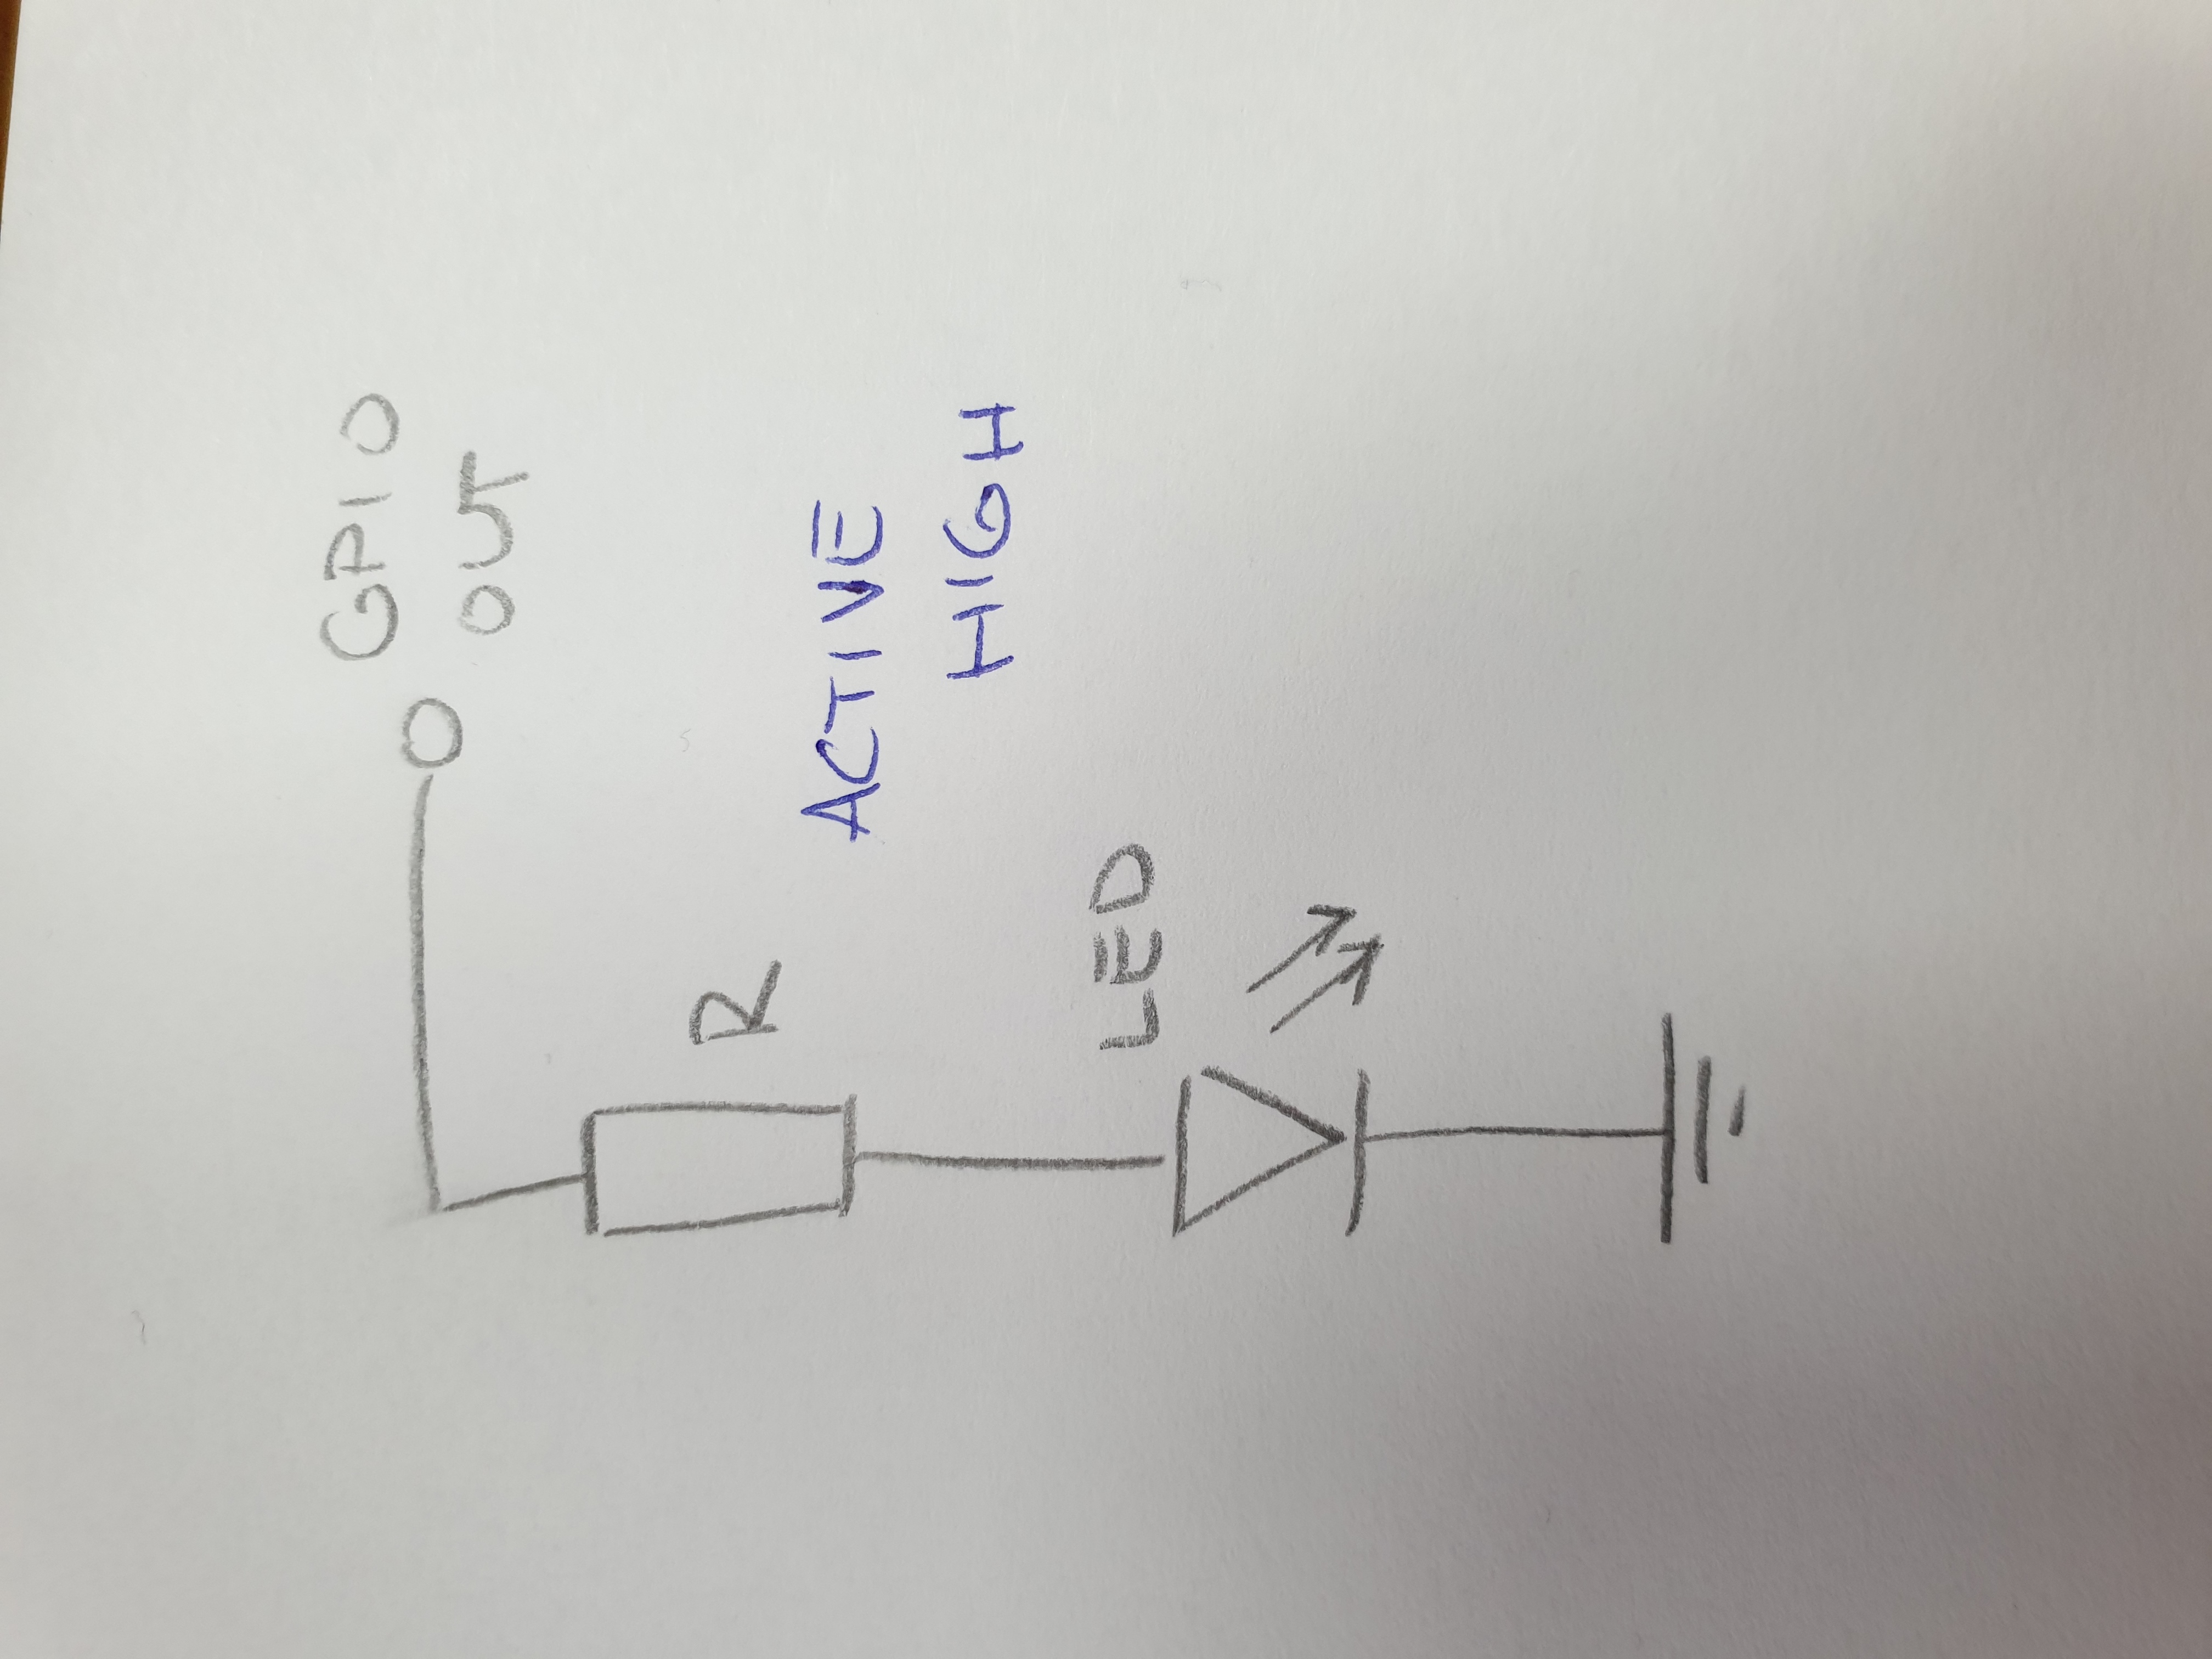 GPIO
OUT
R
ACTIVE
HIGH
LED